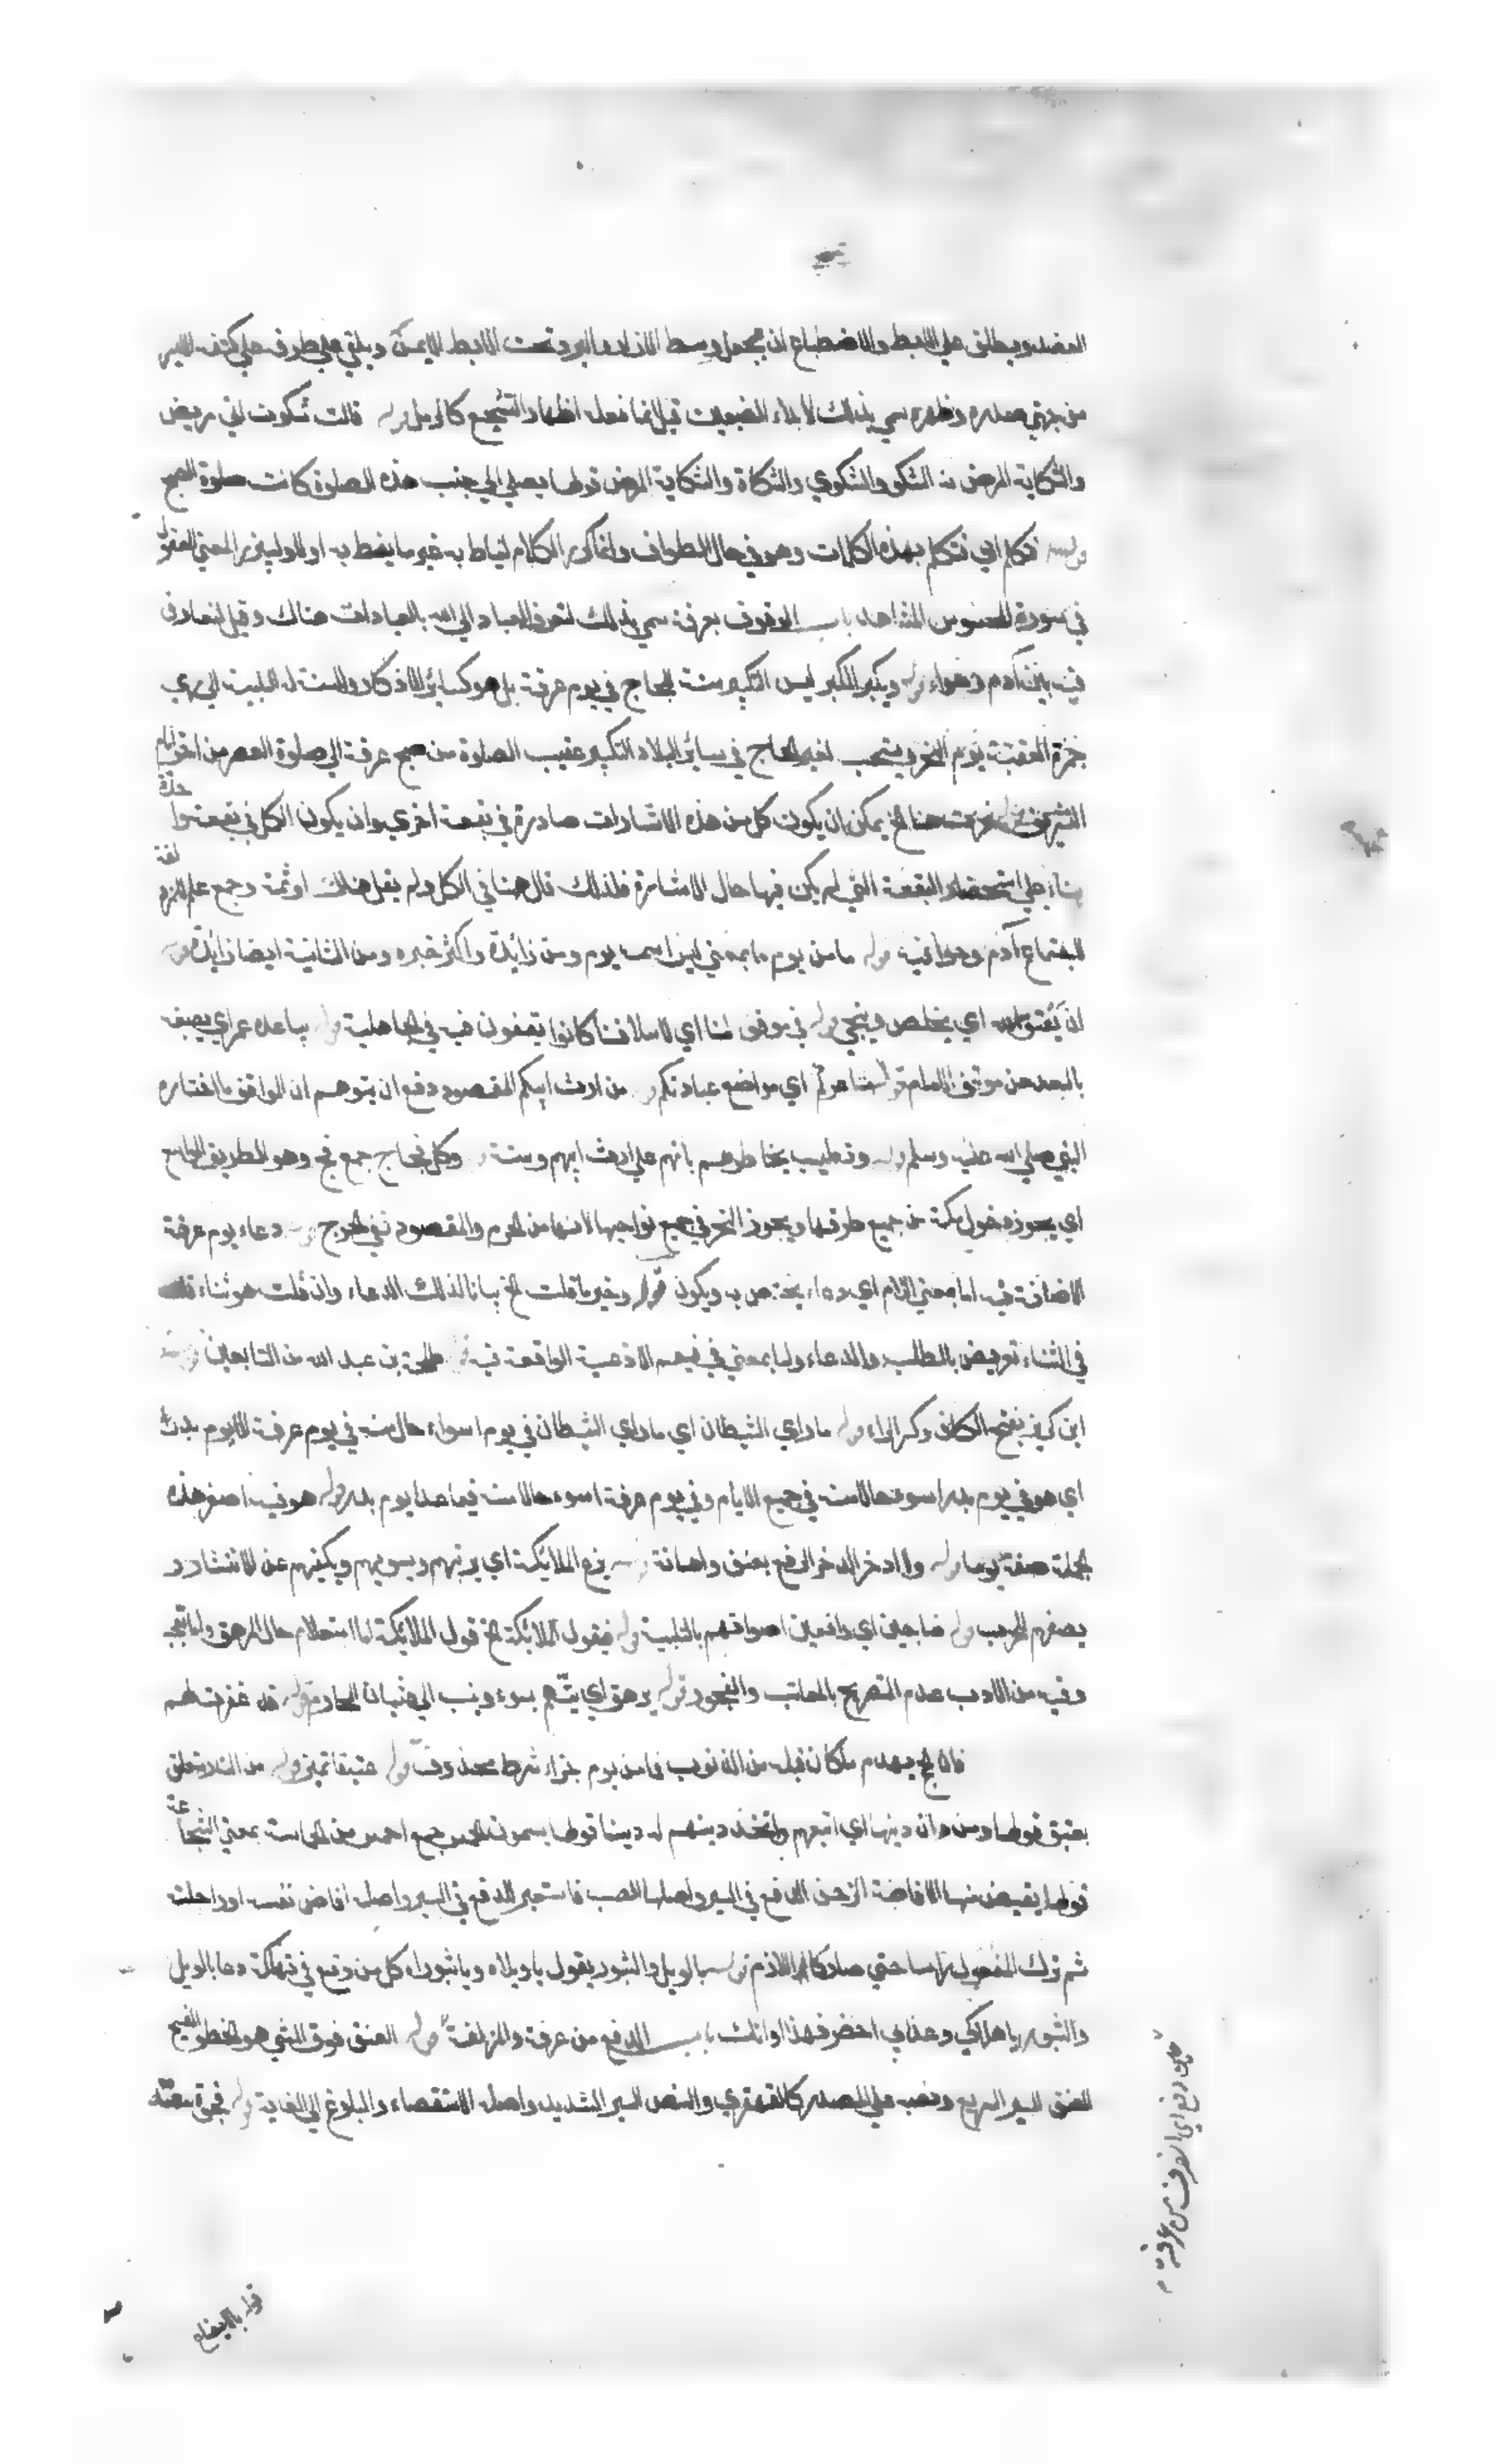 العضد ويطلق علي الابط والاضطباع ان يجعل وسط الازار او البرد تحت الابط الايمن ويلقي علي طرف علي كتفه الايسر
من جهتي صدره وظهره سمي بذلك لابداء الضبعين قيل انما فعله اظهارا للتشجيع كالرمل قوله قالت شكوت اني مريض
والشكاية المرض منه الشكو والشكوي والشكاة والشكاية المرض قولها يصلي الي جنب هذه الصلوة كانت صلوة الصبح
قوله فتكلم اي فتكلم بهذه الكلمات وهو في حال الطواف وانما كرر الكلام ليناط به غير ما ينيط به اولا وليبرز المعني المعقول
في صورة المحسوس المشاهد باب الوقوف بعرفة سمي بذلك لتعرف العباد الي الله بالعبادات هناك وقيل لتعارف
فيه بين آدم وحواء قوله ويكبر المكبر ليس التكبير سنة للحاج في يوم عرفة بل هو كسائر الاذكار والسنة له التلبية الي رمي
جمرة العقبة يوم النحر ويستحب لغير الحاج في سائر البلاد التكبير عقيب الصلوة من صبح عرفة الي صلوة العصر من اخر ايام
التشريق قوله نحرت هنا الخ يمكن ان يكون كل من هذه الاشارات صادرة في بقعة اخري وان يكون الكل في بقعة واحدة
بناء علي استحضار البقعة التي لم يكن فيها حال الاشارة فلذلك قال هنا في الكل ولم يقل هناك او ثمة وجمع علم المزدلفة
لاجتماع آدم وحوا فيه قوله ما من يوم ما بمعني ليس اسمه يوم ومن زائدة واكثر خبره ومن الثانية ايضا زائدة قوله
ان يعتق الله اي يخلص وينجي قوله في موقف لنا اي لاسلافنا كانوا يقفون فيه في الجاهلية قوله يباعده عمرو اي يصفه
بالبعد عن موقف الامام قوله مشاعركم اي مواضع عبادتكم قوله من ارث ابيكم المقصود دفع ان يتوهم ان الواقف ما اختاره
النبي صلي الله عليه وسلم وتطييب خاطرهم بانهم علي ارث ابيهم وسنته قوله وكل فجاج جمع فج وهو الطريق الواسع
اي يجوز دخول مكة من جميع طرقها ويجوز النحر في جميع نواحيها لانها من الحرم والمقصود نفي الحرج قوله دعاء يوم عرفة
الاضافة فيه اما بمعني اللام اي دعاء يختص به ويكون قوله وخير ما قلت الخ بيانا لذلك الدعاء وان قلت هو ثناء قلت
في الثناء تعريض بالطلب والدعاء واما بمعني في فيعم الادعية الواقعة فيه قوله طلحة بن عبد الله من التابعين
ابن كريز بفتح الكاف وكسر الراء قوله ما راي الشيطان اي ما راي الشيطان في يوم اسواء حال منه في يوم عرفة الا يوم بدر
اي هو في يوم بدر اسوء حالا منه في جميع الايام وفي يوم عرفة اسوء حالا منه فيما عدا يوم بدر قوله هو فيه اصغر هذه
الجملة صفة يوما قوله ولا ادحر الدحر الدفع بعنف واهانة قوله يزع الملائكة اي يرتبهم ويسويهم ويكفهم عن الانتشار و
يصفهم للحرب قوله ضاجين اي رافعين اصواتهم بالتلبية قوله فيقول الملائكة الخ قول الملائكة اما استعلام حال المرهق واما تعجب
وفيه من الادب عدم التصريح بالمعايب والفجور قوله يرهق اي يتهم بسوء وينسب الي غشيان المحارم قوله قد غفرت لهم
فان الحج يهدم ما كان قبله من الذنوب فما من يوم جزاء شرط محذوف قوله عتيقا تمييز قوله من النار متعلق
بعتيق قولها ومن دان دينها اي اتبعهم واتخذ دينهم له دينا قولها يسمون الحمس جمع احمس من الحماسة بمعني الشجاعة
قولها يفيض منها الافاضة الزحف الدفع في السير واصلها الصب فاستعير للدفع في السير واصله افاض نفسه او راحلته
ثم ترك المفعول راسا حتي صار كاللازم قوله بالويل والثبور يقول يا ويلاه ويا ثبوراه كل من وقع في تهلكة دعا بالويل
والثبور يا هلاكي وعذابي احضر فهذا اوانك باب الدفع من عرفة والمزدلفة قوله العنق فوق المشي هو الخطو الفسيح
العنق السير السريع ونصب علي المصدر كالقهقري والنص السير الشديد واصله الاستقصاء والبلوغ الي الغاية قوله فجوة سعة
حين دفع اي انصرف من عرفة
قوله بالايضاع